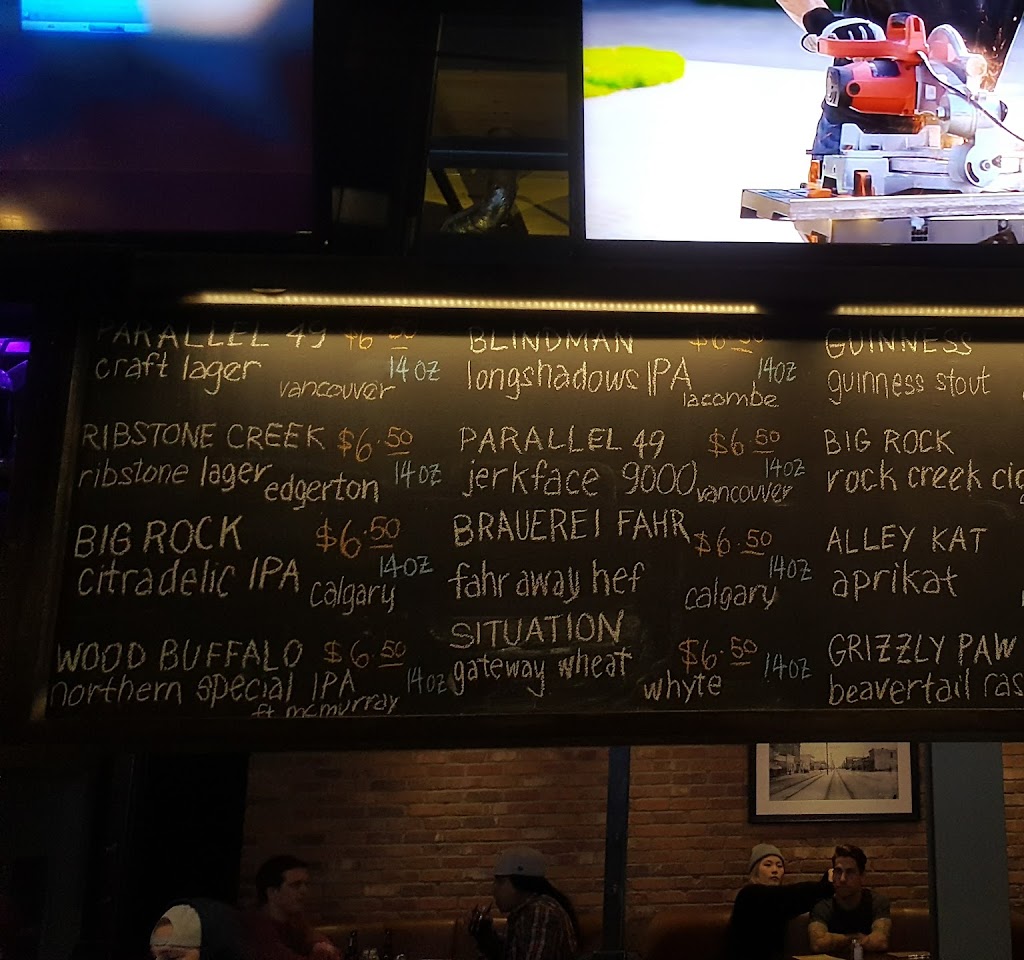 PARALLEL 49 $6.50
craft lager 14oz
vancouver
RIBSTONE CREEK $6.50
ribstone lager 14oz
edgerton
BIG ROCK $6.50
citradelic IPA 14oz
calgary
WOOD BUFFALO $6.50
northern special IPA 14oz
ft mcmurray
BLINDMAN $6.50
longshadows IPA 14oz
lacombe
PARALLEL 49 $6.50
jerkface 9000 14oz
vancouver
BRAUEREI FAHR $6.50
fahr away hef 14oz
calgary
SITUATION $6.50
gateway wheat 14oz
whyte
GUINNESS
guinness stout
BIG ROCK
rock creek
ALLEY KAT
aprikat
GRIZZLY PAW
beavertail